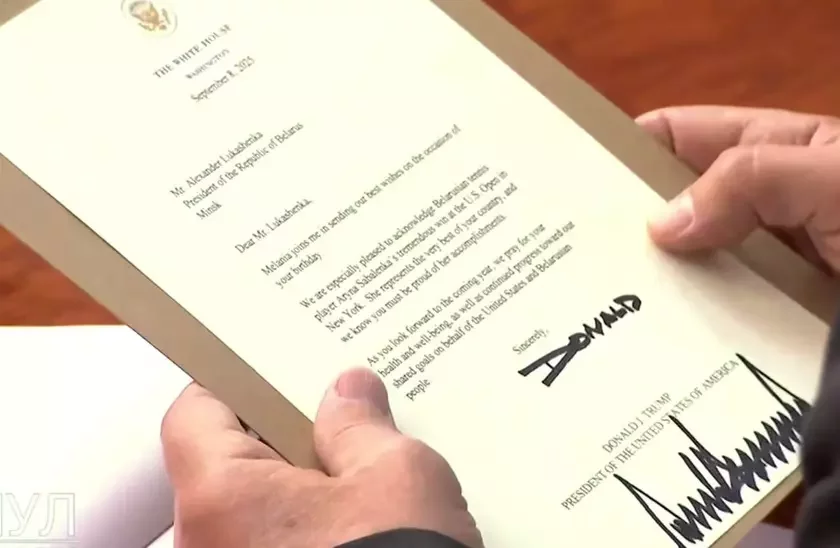 THE WHITE HOUSE
WASHINGTON
September 8, 2025
Mr. Alexander Lukashenka
President of the Republic of Belarus
Minsk
Dear Mr. Lukashenka,
Melania joins me in sending our best wishes on the occasion of
your birthday
We are especially pleased to acknowledge Belarusian tennis
player Aryna Sabalenka's tremendous win at the U.S. Open in
New York. She represents the very best of your country, and
we know you must be proud of her accomplishments.
As you look forward to the coming year, we pray for your
health and well-being, as well as continued progress toward our
shared goals on behalf of the United States and Belarusian
people
Sincerely,
DONALD
DONALD J. TRUMP
PRESIDENT OF THE UNITED STATES OF AMERICA
ПУЛ